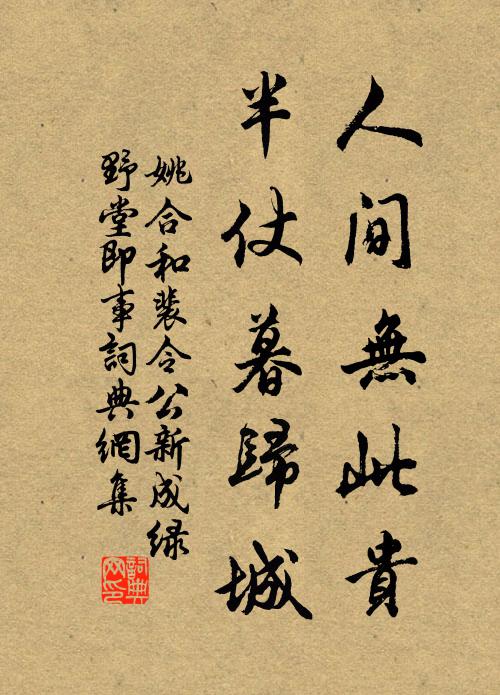 人間無此貴
半仗暮歸城
姚合和裴令公新成緑
野堂即事詞典網集
詞典
网印